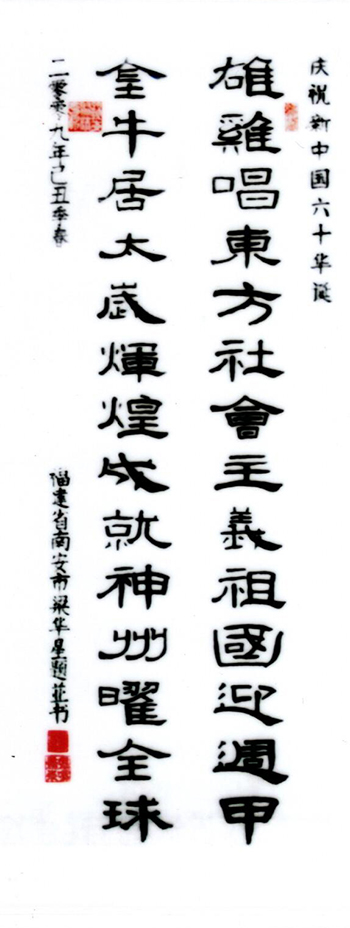 庆祝新中国六十华诞
雄雞唱東方社會主義祖國迎週甲
金牛居太歲煇煌成就神州曜全球
二零零九年己丑季春
福建省南安市梁华星题并书